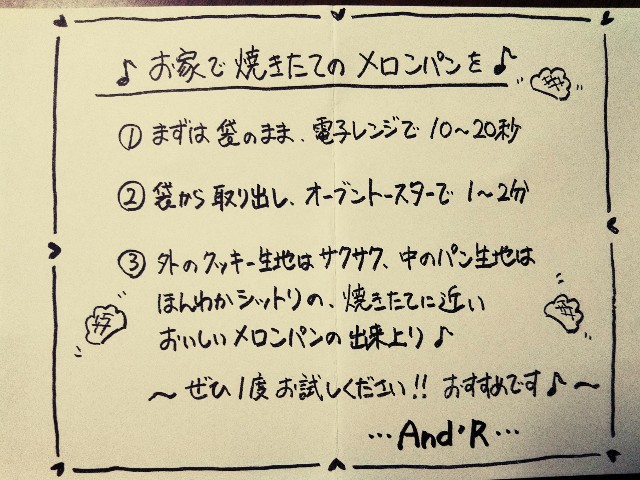 ♪ お家で焼きたてのメロンパンを ♪
① まずは袋のまま、電子レンジで 10～20秒
② 袋から取り出し、オーブントースターで 1～2分
③ 外のクッキー生地はサクサク、中のパン生地は
ほんわかシットリの、焼きたてに近い
おいしいメロンパンの出来上り♪
～ ぜひ1度お試しください!! おすすめです♪ ～
…And'R…